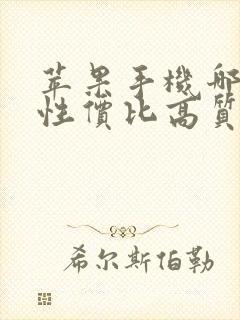 苹果手機哪
性價比高質
希尔斯伯勒